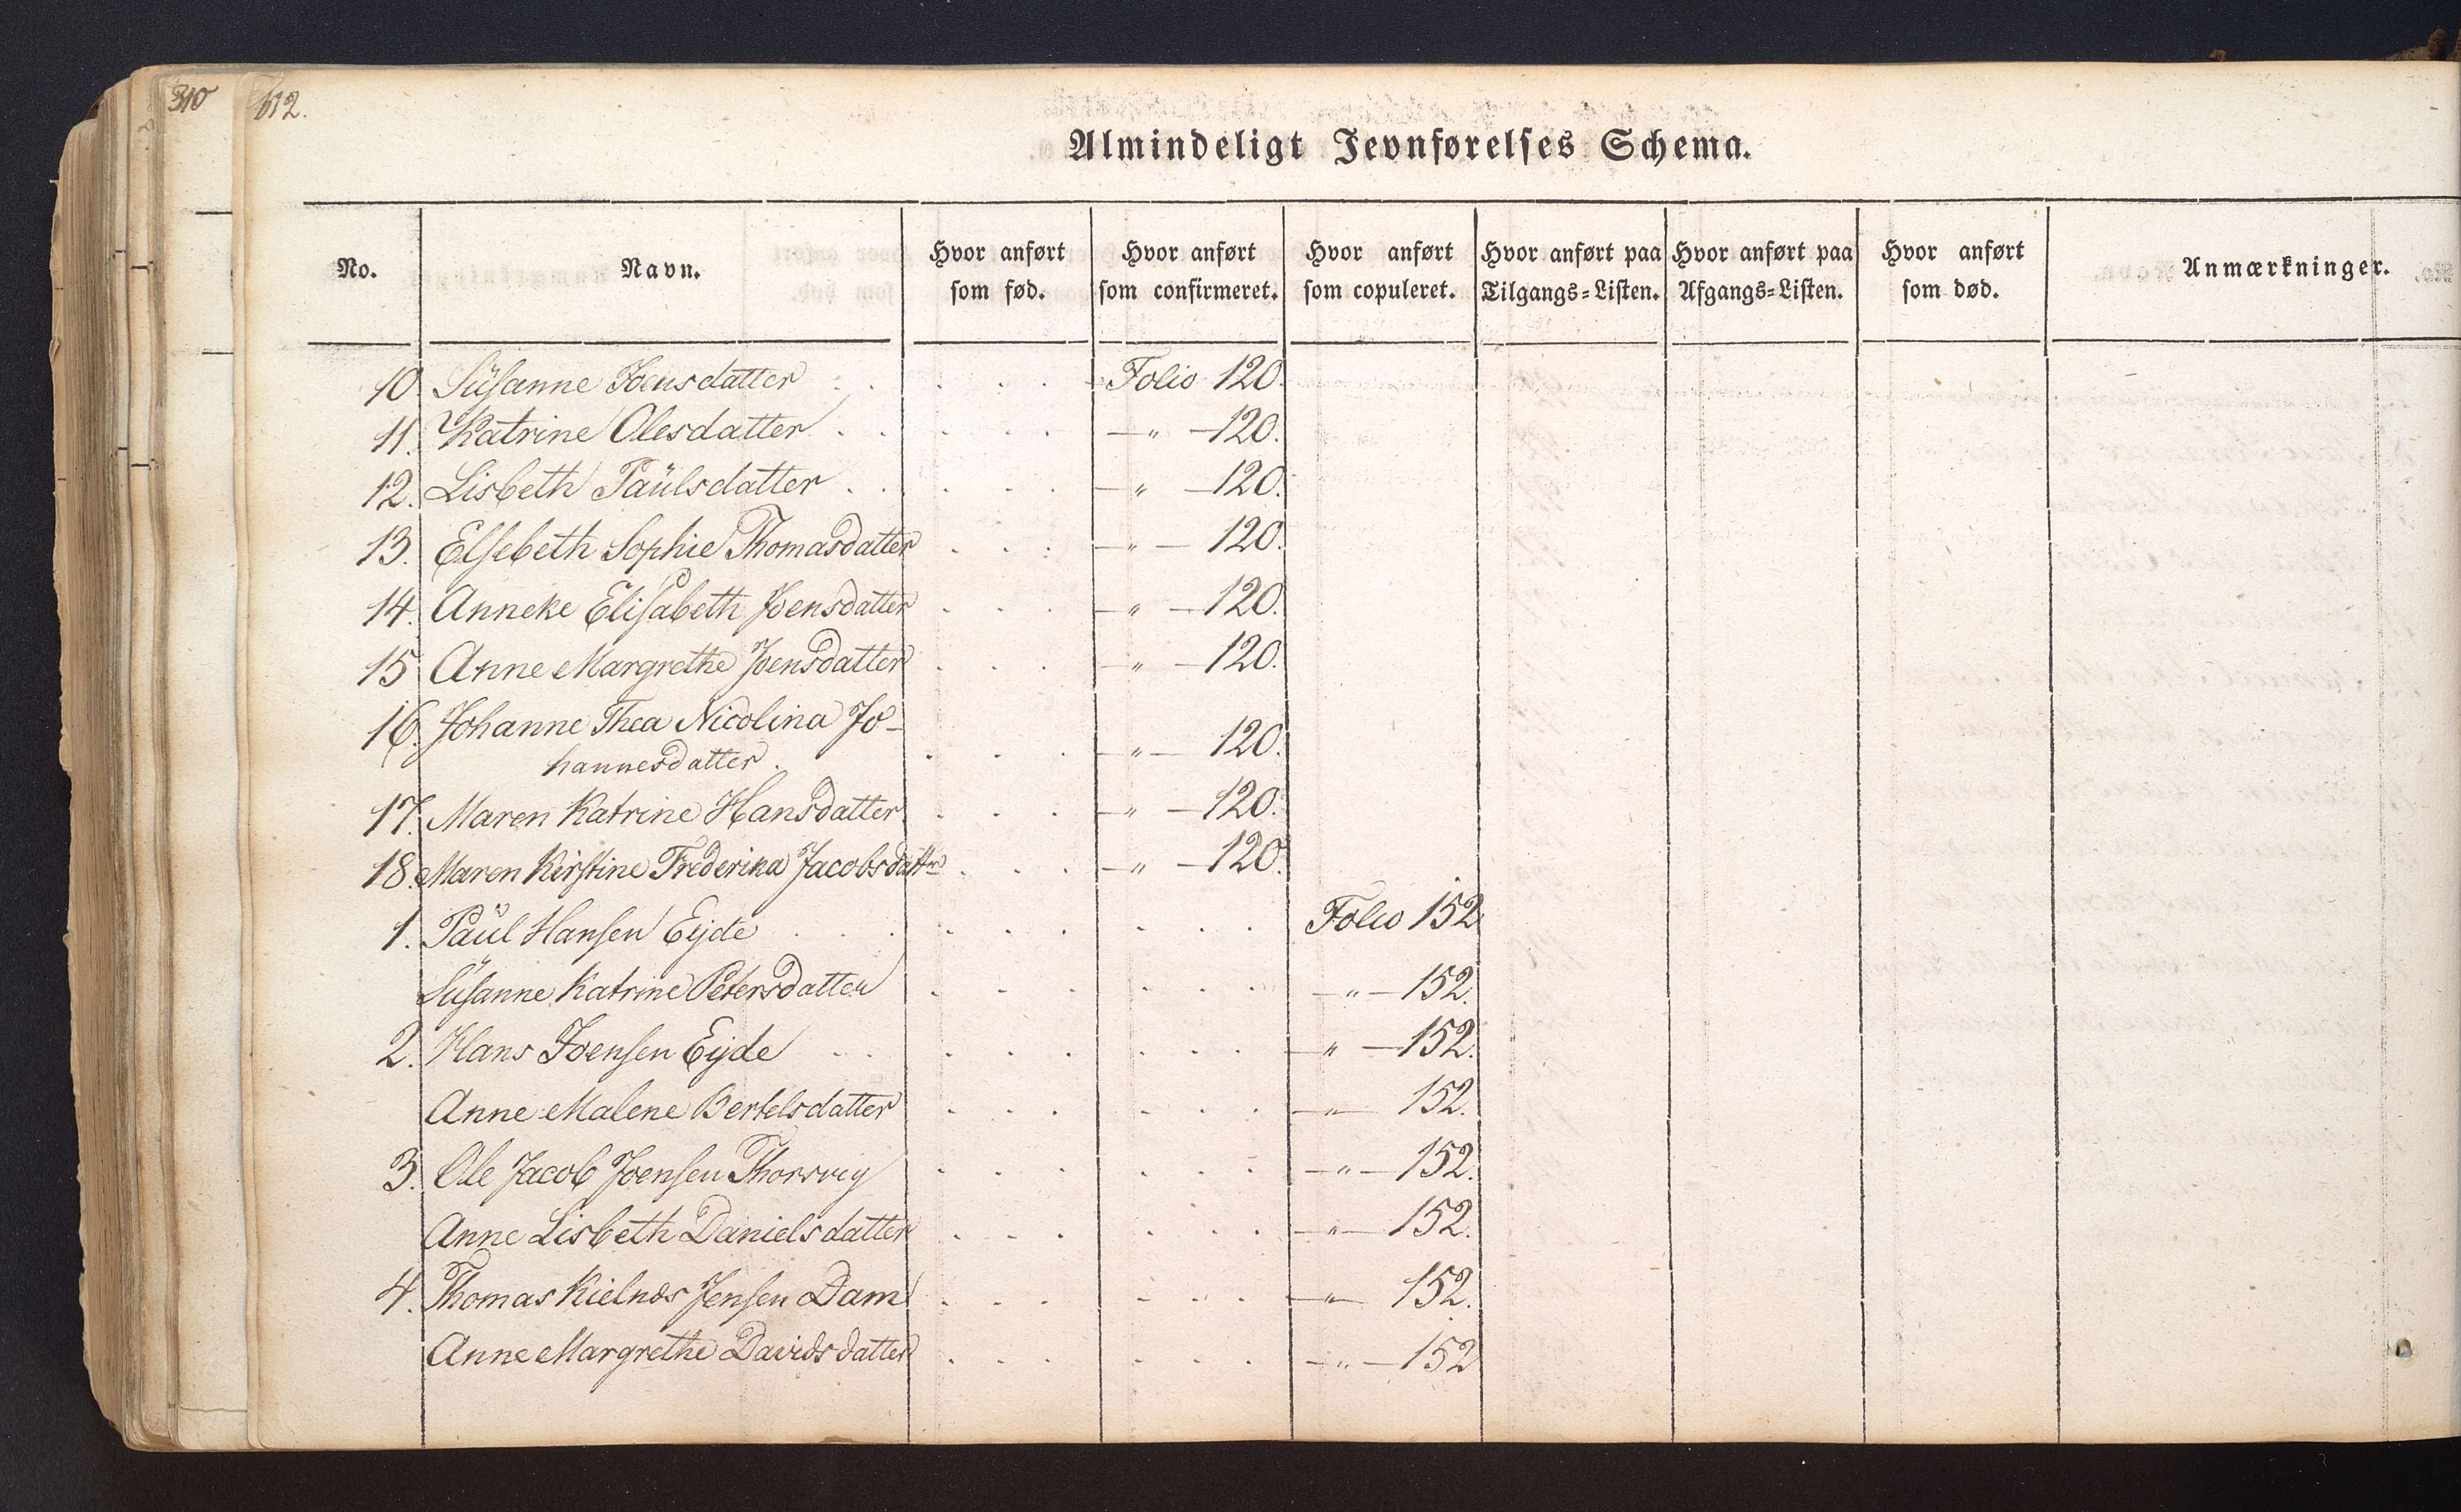 310 612.
Almindeligt Jevnførelses Schema.
No. Navn. Hvor anført som fød. Hvor anført som confirmeret. Hvor anført som copuleret. Hvor anført paa Tilgangs=Listen. Hvor anført paa Afgangs=Listen. Hvor anført som død. Anmærkninger.
10. Susanne Joensdatter . . . . . Folio 120.
11. Katrine Olesdatter . . . . . —„—120.
12. Lisbeth Paulsdatter . . . . . —„—120.
13. Elsebeth Sophie Thomasdatter . . . —„—120.
14. Anneke Elisabeth Joensdatter . . . —„—120.
15 Anne Margrethe Joensdatter . . . —„—120.
16. Johanne Thea Nicolina Jo-
hannesdatter . . . . —„—120.
17. Maren Katrine Hansdatter . . . —„—120.
18. Maren Kirstine Frederika Jacobsdattr . . . —„—120.
1. Paul Hansen Eyde . . . . . . . . Folio 152
Susanne Katrine Petersdatter . . . . . . —„—152.
2. Hans Joensen Eyde . . . . . . . . —„—152.
Anne Malene Bertelsdatter . . . . . . —„—152.
3. Ole Jacob Joensen Thorsvig . . . . . . —„—152.
Anne Lisbeth Danielsdatter . . . . . . —„—152.
4. Thomas Kielnæs Jensen Dam . . . . . . —„—152.
Anne Margrethe Davidsdatter . . . . . . —„—152